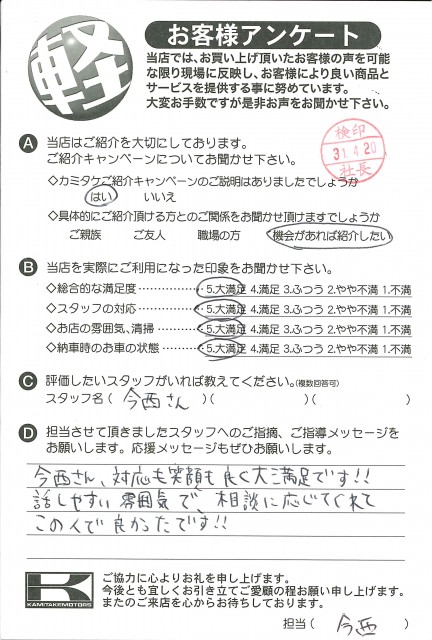 軽
お客様アンケート
当店では、お買い上げ頂いたお客様の声を可能
な限り現場に反映し、お客様により良い商品と
サービスを提供する事に努めています。
大変お手数ですが是非お声をお聞かせ下さい。
検印
31.4.20
社長
A 当店はご紹介を大切にしております。
ご紹介キャンペーンについてお聞かせ下さい。
◇カミタケご紹介キャンペーンのご説明はありましたでしょうか
はい いいえ
◇具体的にご紹介頂ける方とのご関係をお聞かせ頂けますでしょうか
ご親族 ご友人 職場の方 機会があれば紹介したい
B 当店を実際にご利用になった印象をお聞かせ下さい。
◇総合的な満足度……………5.大満足 4.満足 3.ふつう 2.やや不満 1.不満
◇スタッフの対応……………5.大満足 4.満足 3.ふつう 2.やや不満 1.不満
◇お店の雰囲気、清掃………5.大満足 4.満足 3.ふつう 2.やや不満 1.不満
◇納車時のお車の状態………5.大満足 4.満足 3.ふつう 2.やや不満 1.不満
C 評価したいスタッフがいれば教えてください。(複数回答可)
スタッフ名( 今西さん )( )( )
D 担当させて頂きましたスタッフへのご指摘、ご指導メッセージを
お願いします。応援メッセージもぜひお願いします。
今西さん、対応も笑顔も良く大満足です!!
話しやすい雰囲気で、相談に応じてくれて
この人で良かったです!!
K
KAMITAKEMOTORS
ご協力に心よりお礼を申し上げます。
今後とも宜しくお引き立てご愛顧の程お願い申し上げます。
またのご来店を心からお待ちしております。
担当( 今西 )